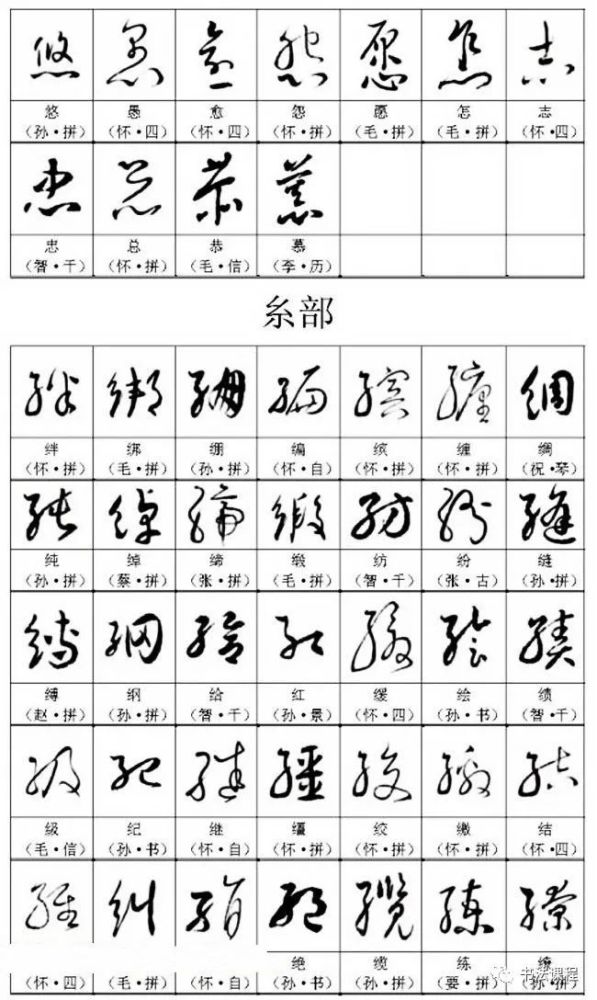 悠 愚 愈 怨 愿 怎 志
（孙·拼） （怀·四） （怀·四） （怀·拼） （毛·拼） （毛·拼） （怀·四）
忠 总 恭 慕
（智·千） （怀·拼） （毛·信） （李·历）
糸部
绊 绑 绷 编 缤 缠 绸
（怀·拼） （毛·拼） （孙·拼） （怀·自） （怀·拼） （怀·拼） （祝·琴）
纯 绰 缔 缎 纺 纷 缝
（孙·拼） （蔡·拼） （张·拼） （毛·拼） （智·千） （张·古） （孙·拼）
缚 纲 给 红 缓 绘 绩
（赵·拼） （孙·拼） （智·千） （孙·景） （怀·四） （孙·书） （智·千）
级 纪 继 缰 绞 缴 结
（毛·信） （孙·书） （怀·自） （怀·拼） （怀·拼） （怀·拼） （怀·四）
绝 缆 练 缭
（怀·四） （毛·拼） （怀·自） （孙·书） （孙·拼） （要·拼） （孙·拼）
书法课程